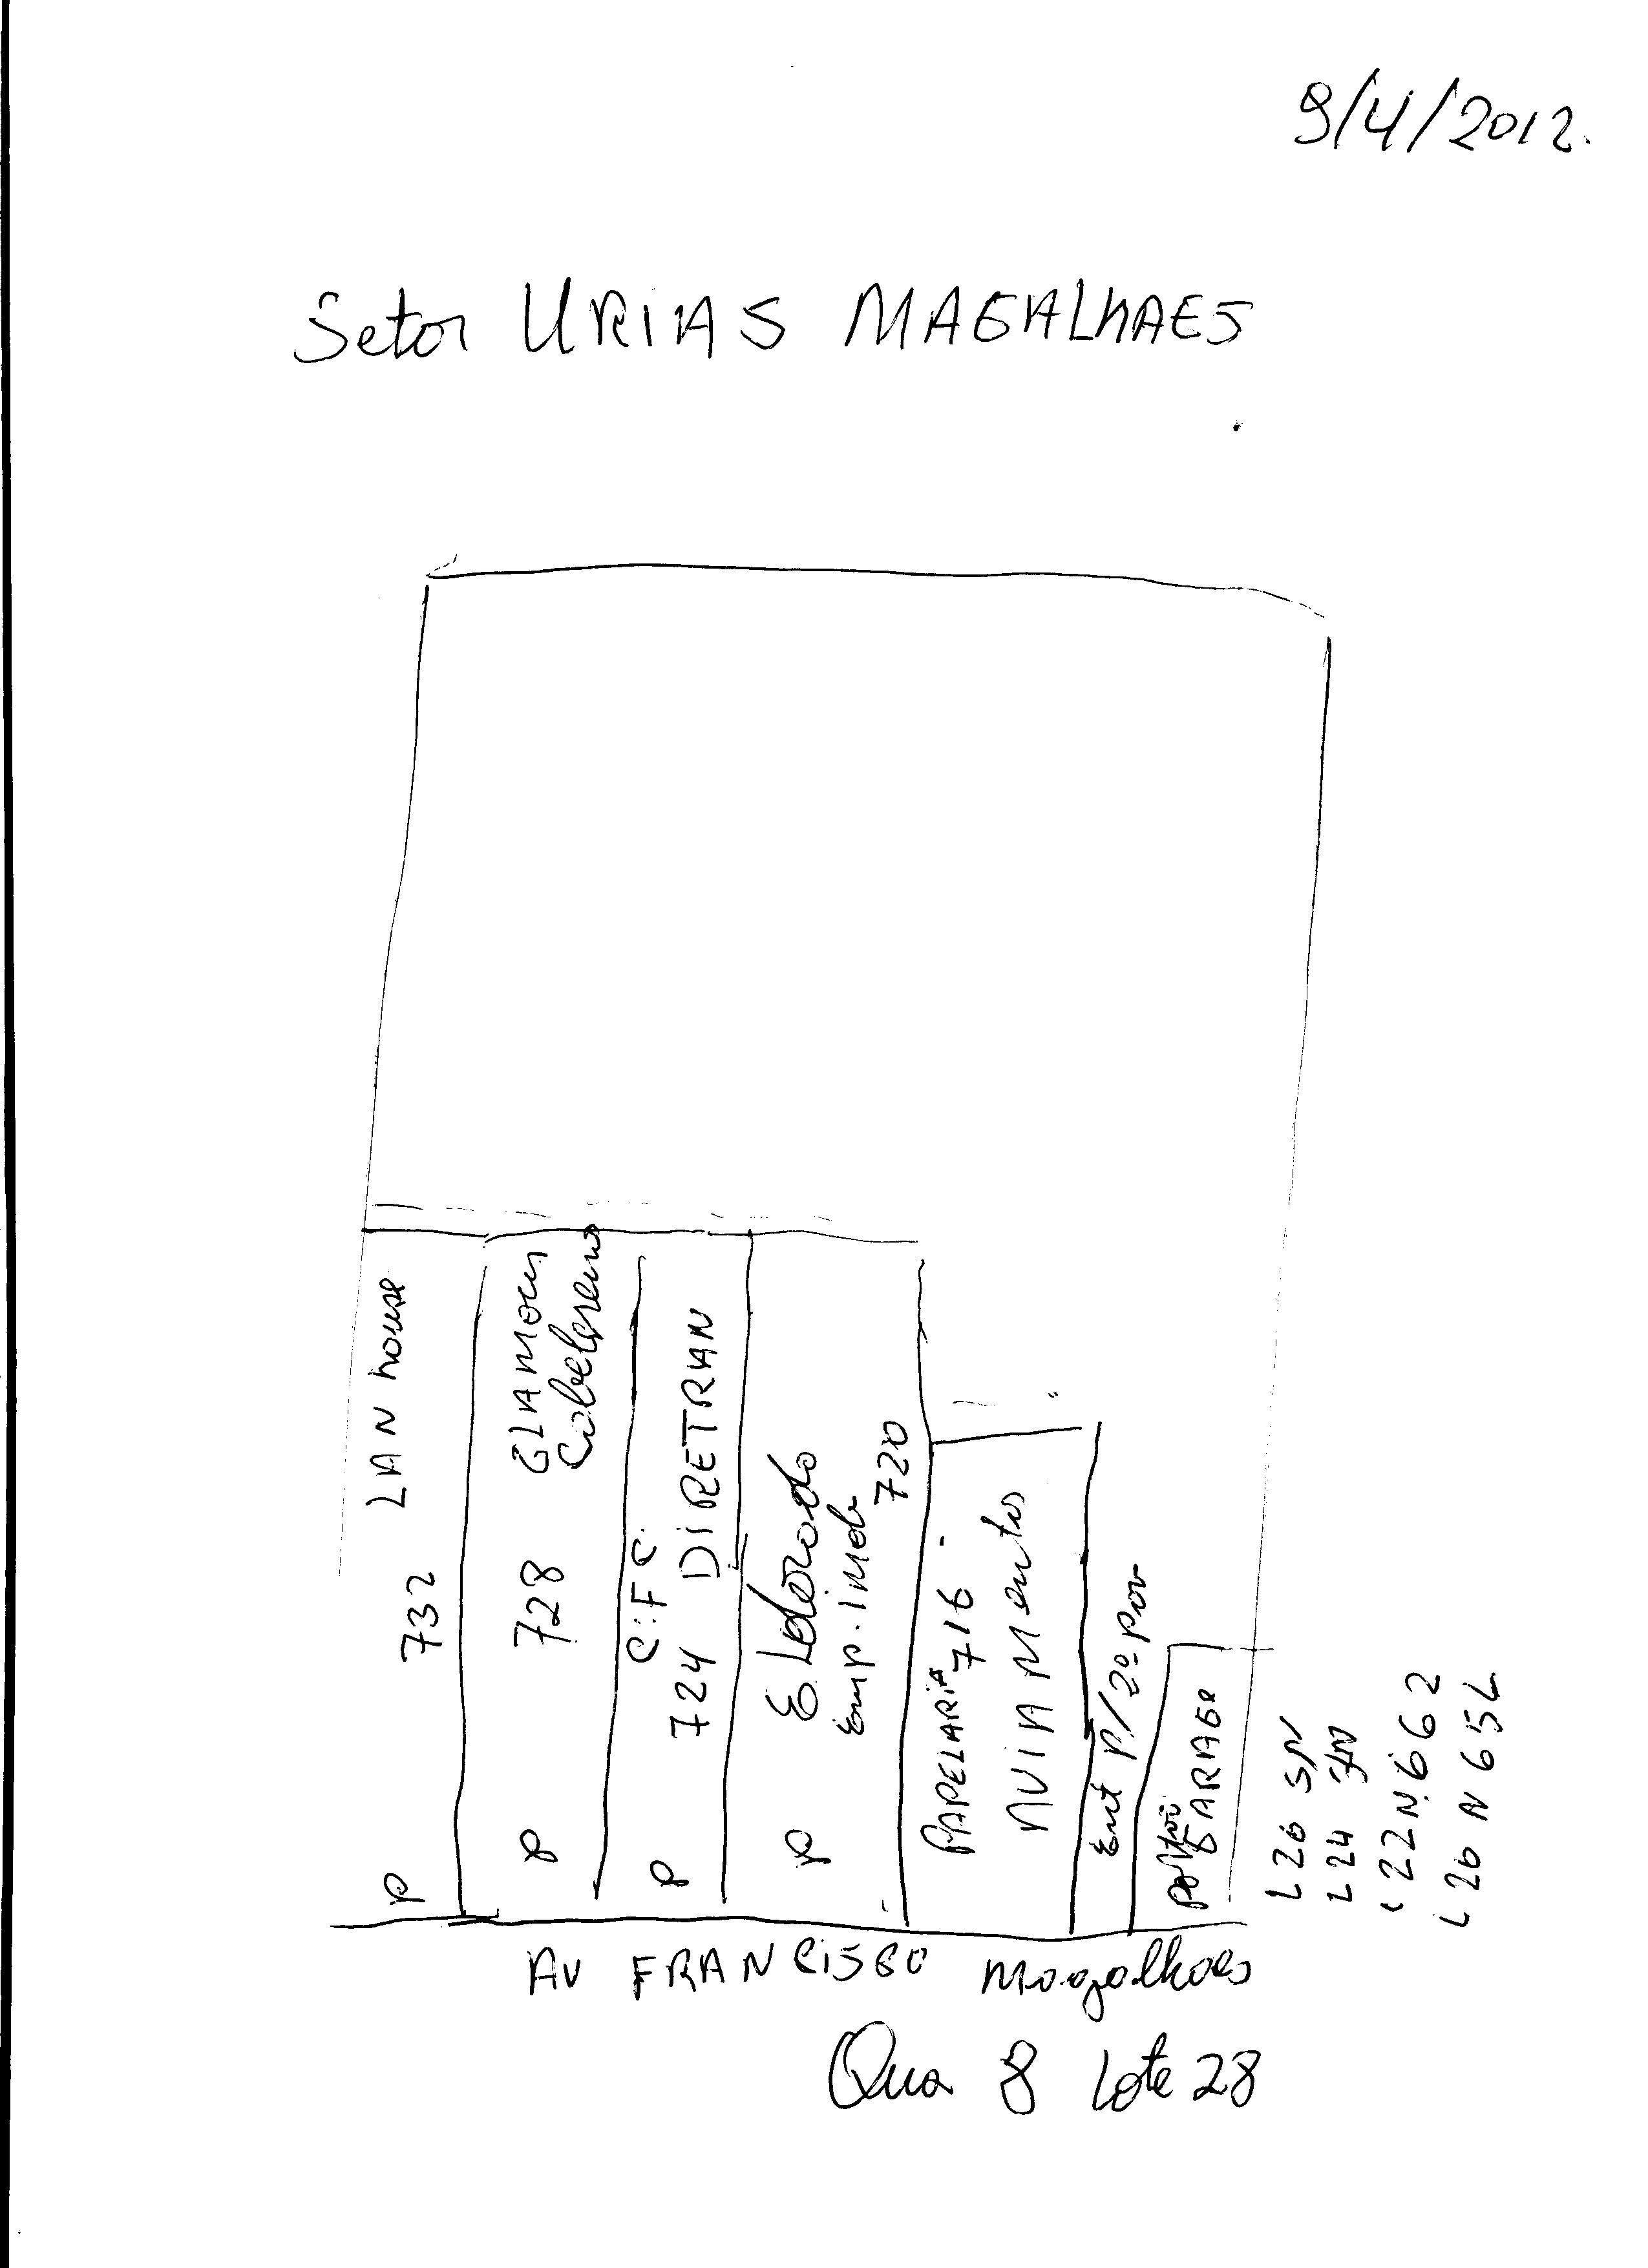 9/4/2012.
Setor URIAS MAGALHAES
LAN house
732
P
GLAMOUR
Cabelereiro
728
P
C.F.C.
724 DIRETRAN
P
ELdorado
Emp. imob
720
P
PAPELARIA 716
AVIAMentos
Ent P/ 2º Pav
Portão
GARAGE
L 26 SN
L 24 SN
L 22 N 662
L 20 N 654
AV FRANCISCO Magalhaes
Qua 8 Lote 28